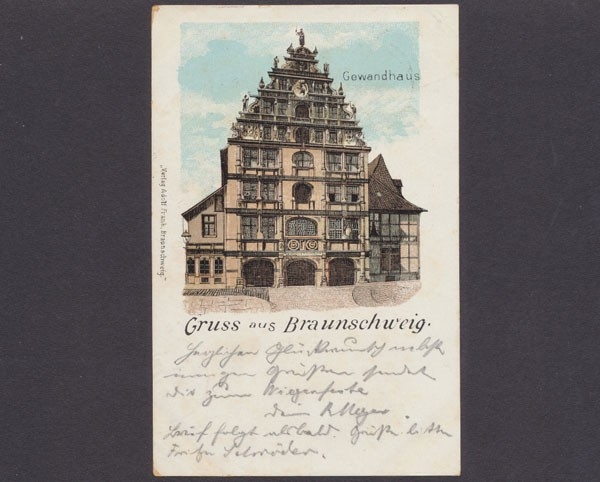 Gewandhaus
"Verlag Adolf Frank, Braunschweig."
Gruss aus Braunschweig.
Herzlichen Glückwunsch nebst
innigen Grüßen sendet
dir zum Wiegenfeste
dein R Meyer.
Brief folgt alsbald. Grüße bitte
Fritz Schröder.